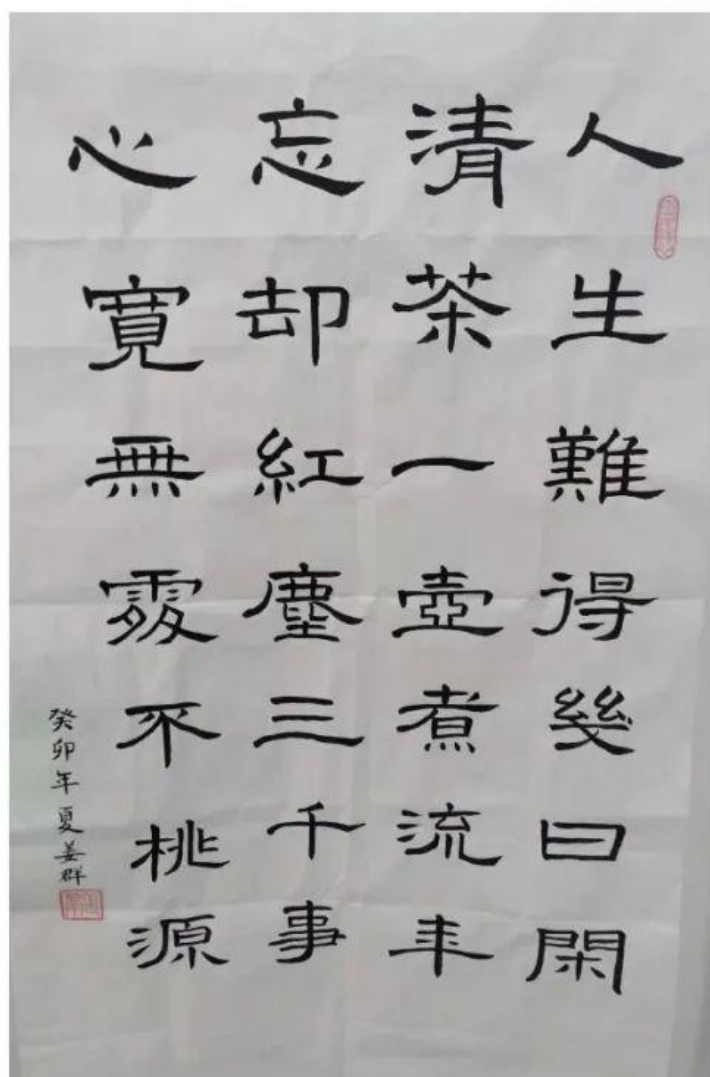 人生難得幾日閑
清茶一壺煮流年
忘却紅塵三千事
心寬無處不桃源
癸卯年夏姜群